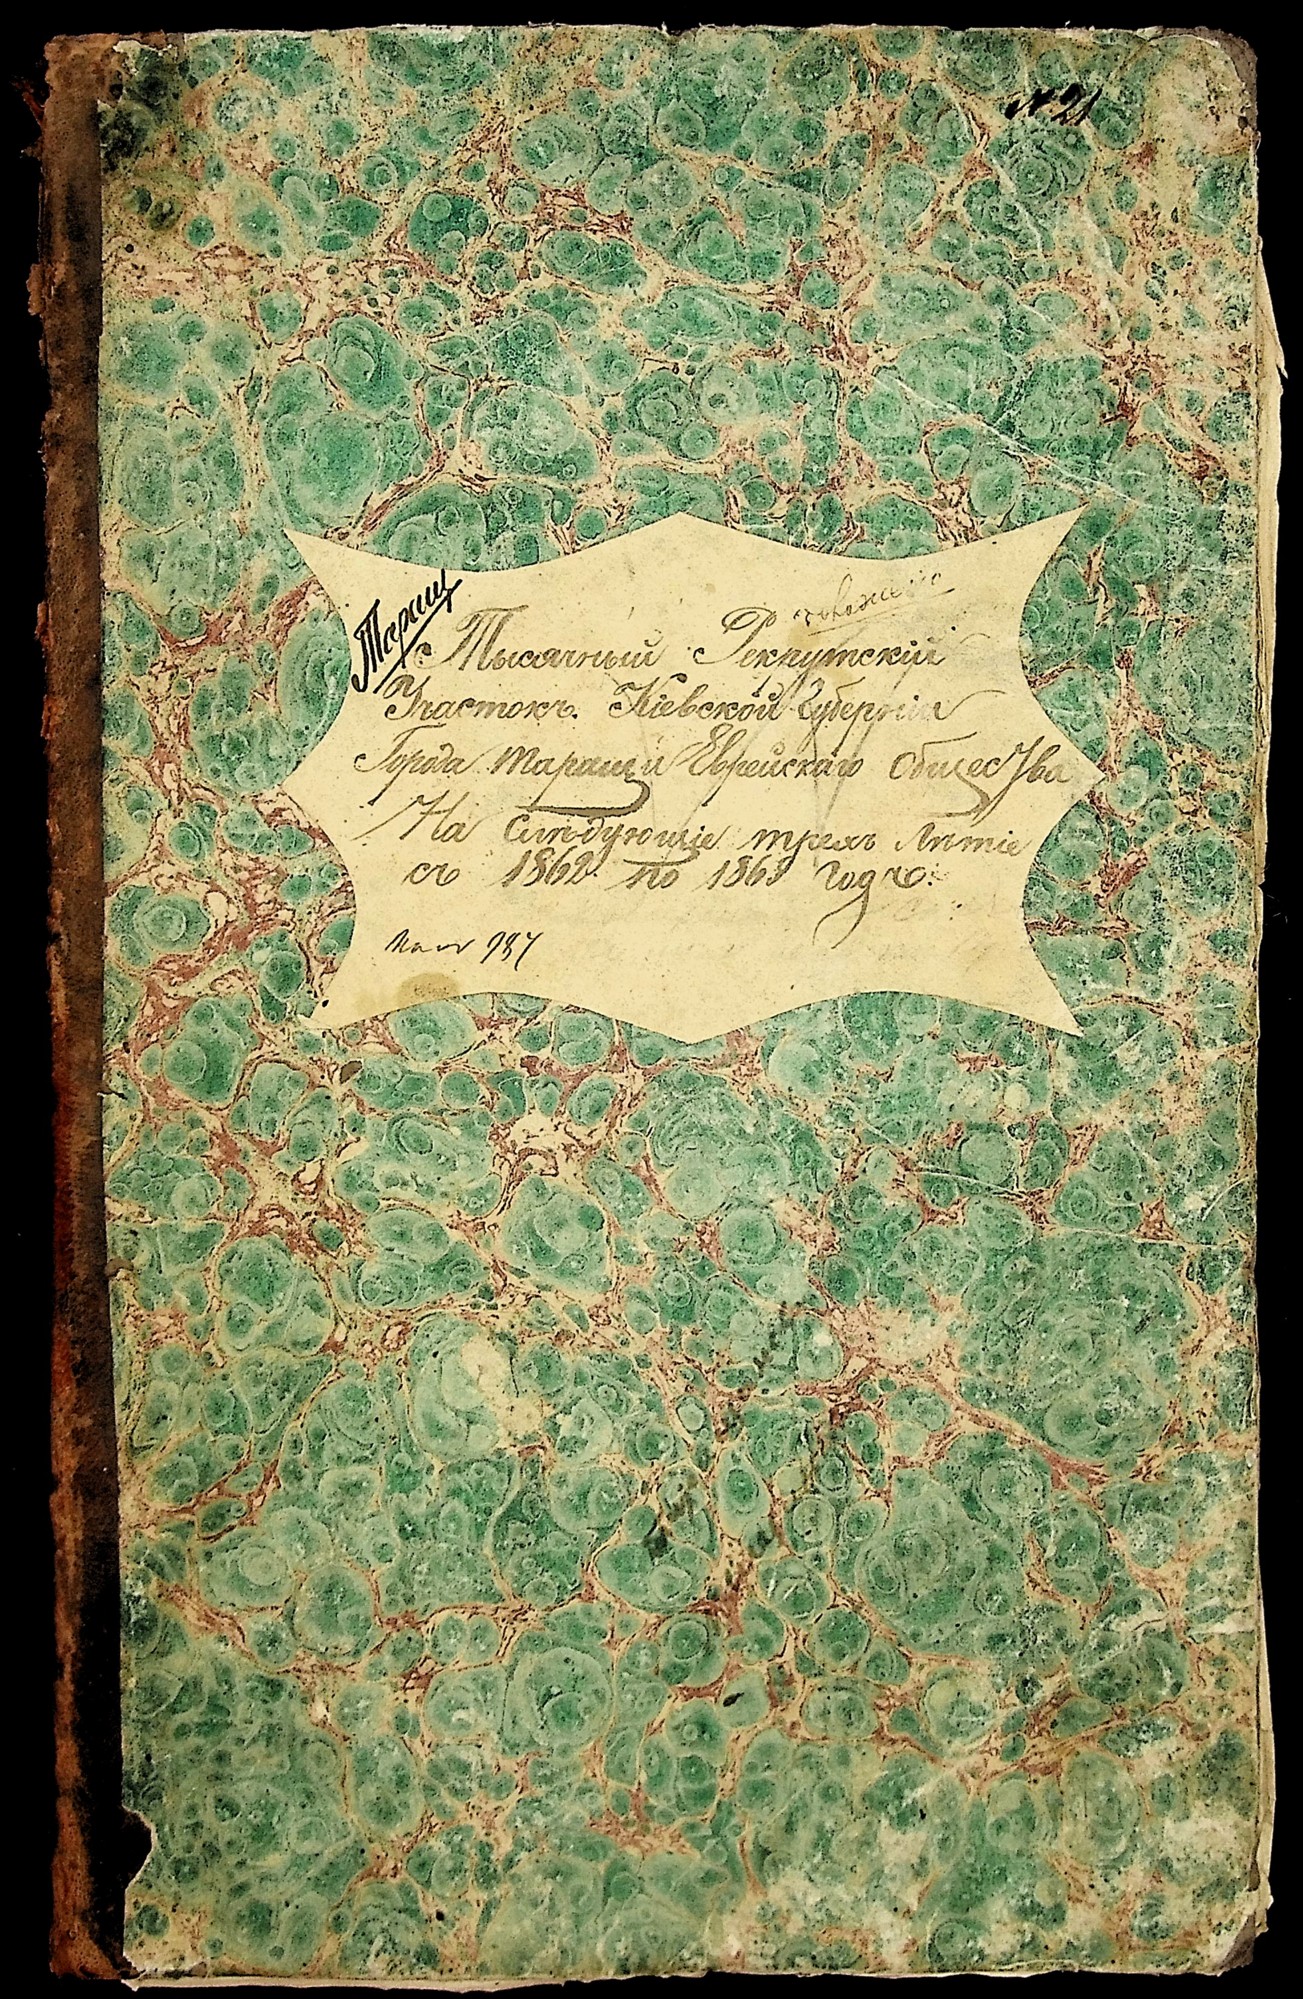 № 21
Таращ
Тысячный Рекрутский
Участокъ Кіевской Губерніи
Города Таращи Еврейскаго Общества
На Слѣдующіе трехъ Лѣтіе
съ 1862 по 1865 годъ:
987